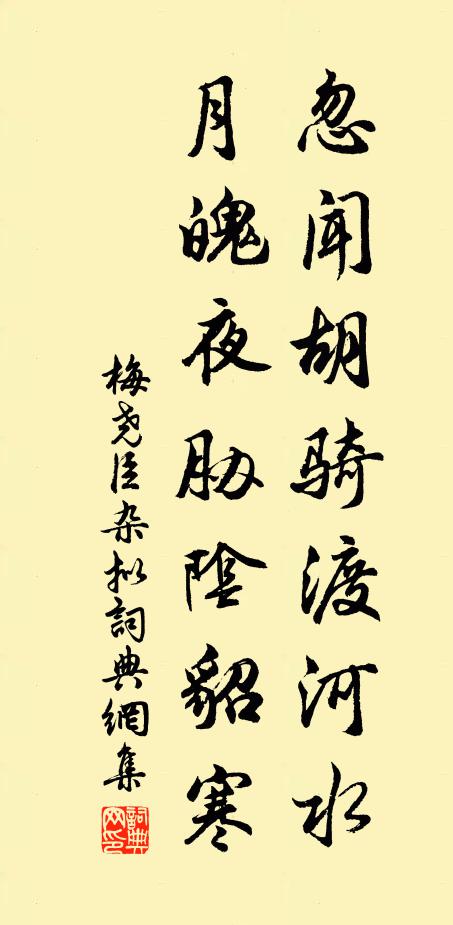 忽闻胡骑渡河水
月魄夜胁阴貂寒
梅尧臣杂拟詞典網集
詞典网印